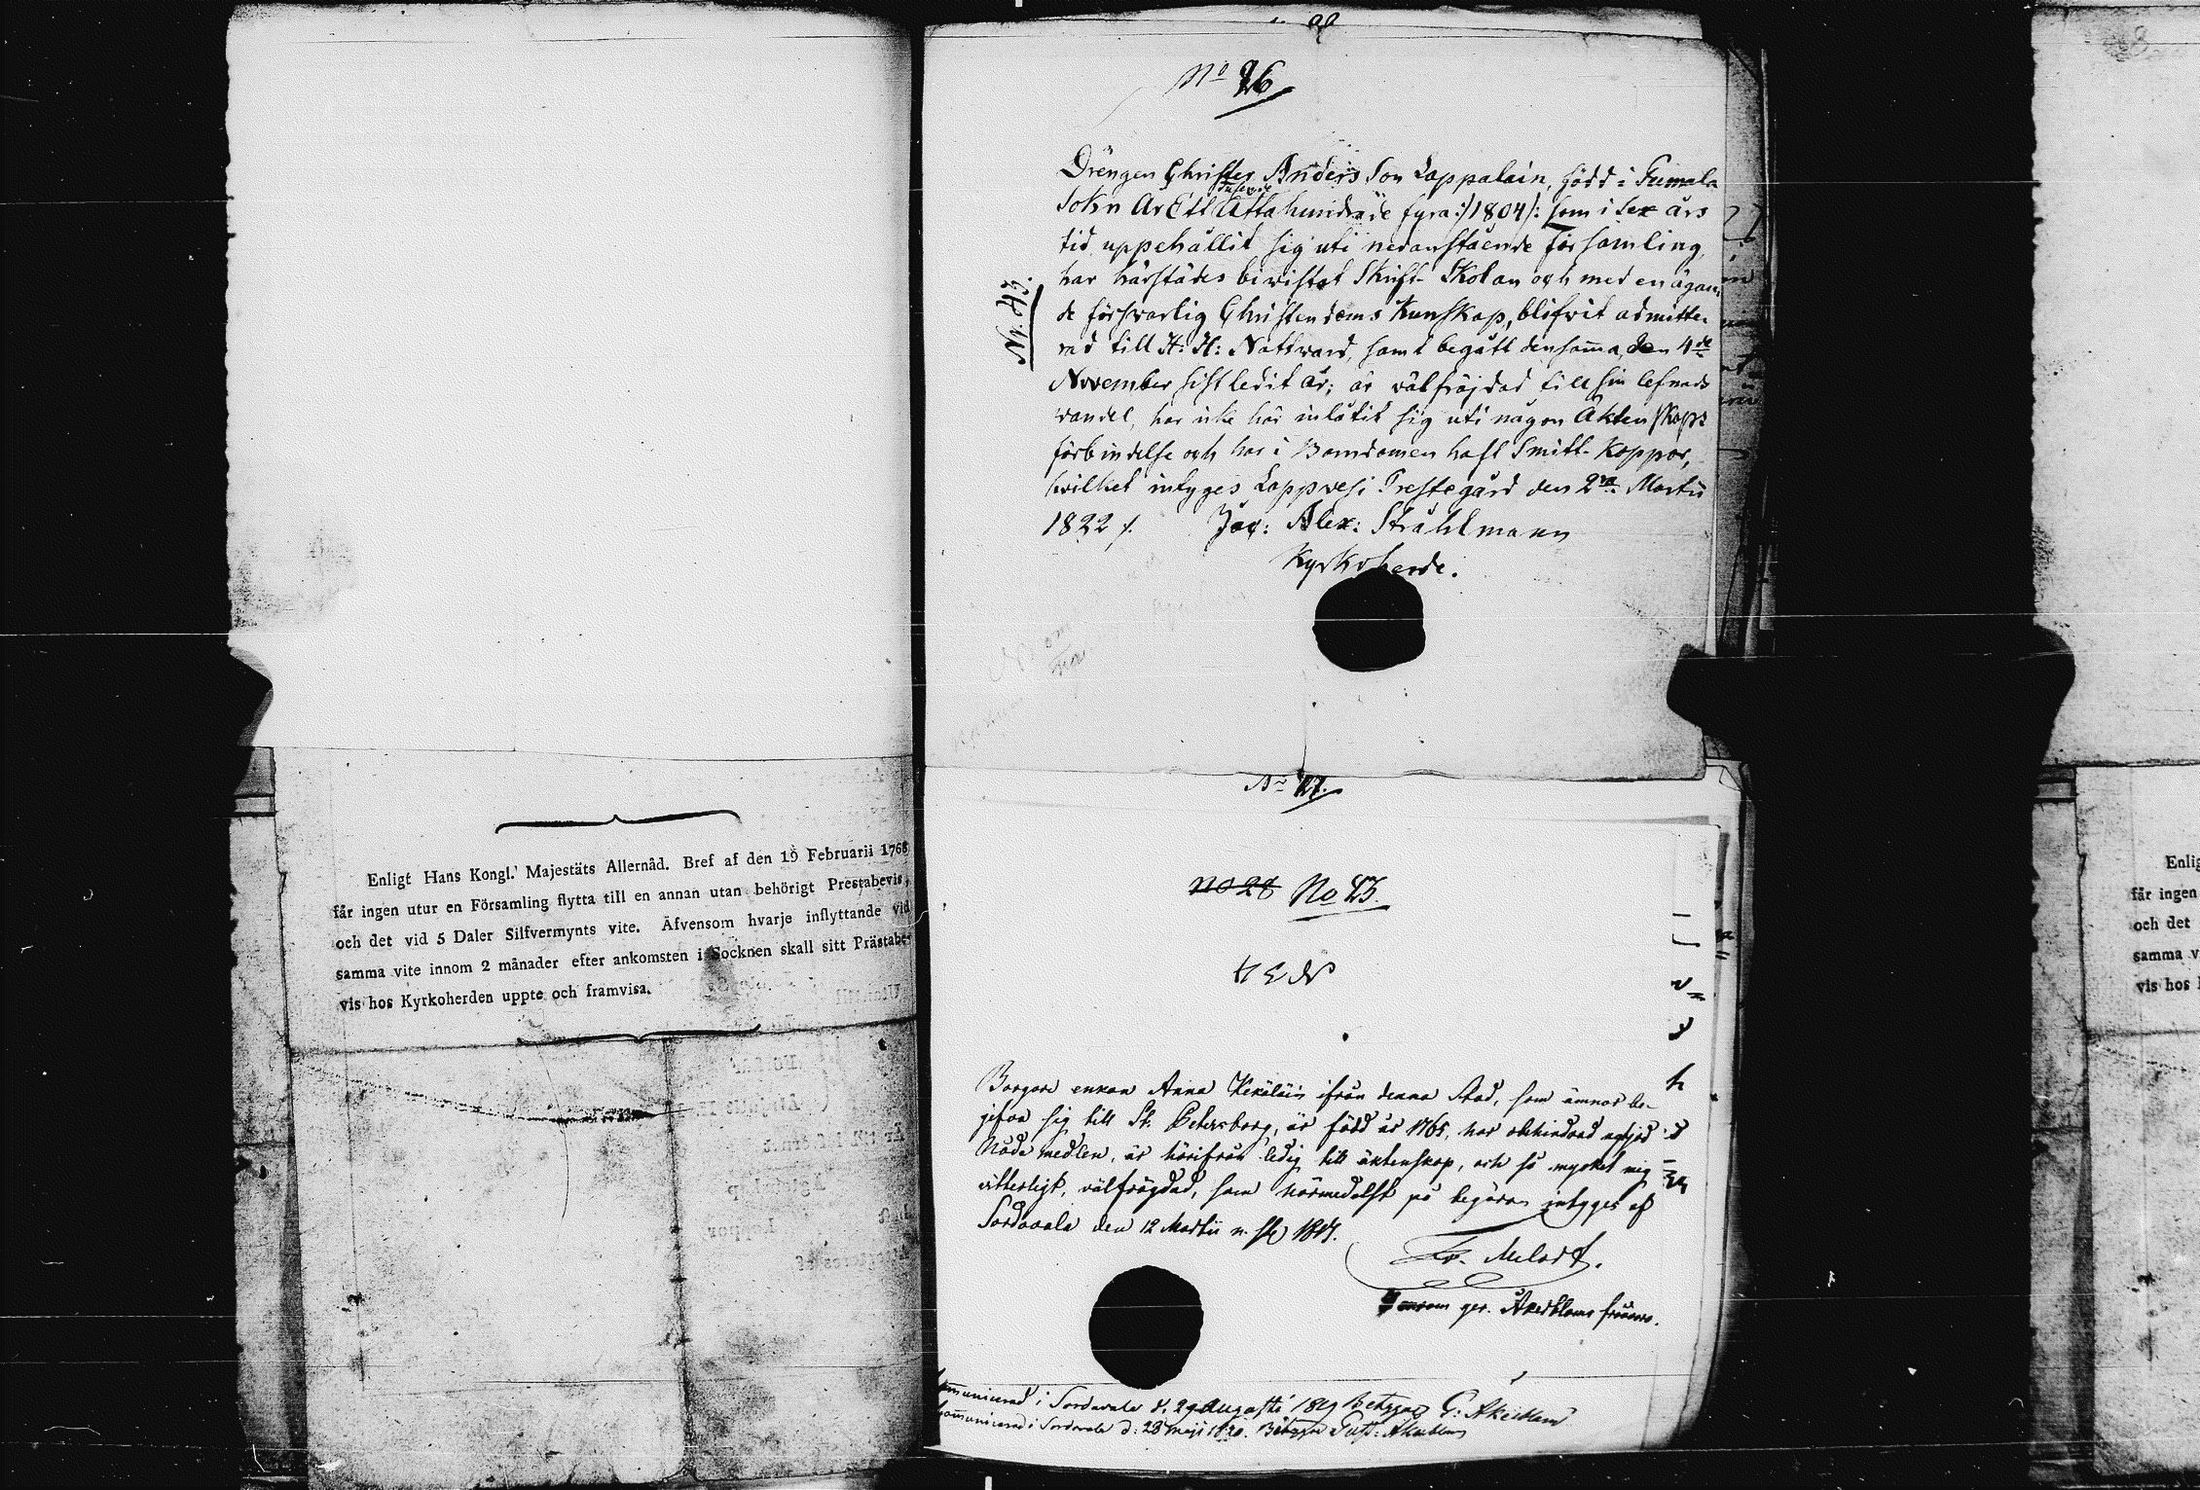 Enligt Hans Kongl. Majestäts Allernåd. Bref af den 19 Februarii 1768
får ingen utur en Församling flytta till en annan utan behörigt Prestabevis,
och det vid 5 Daler Silfvermynts vite. Äfvensom hvarje inflyttande vid
samma vite innom 2 månader efter ankomsten i Socknen skall sitt Prästabe-
vis hos Kyrkoherden uppte och framvisa.
No 26
Nr. 43.
Drengen Christer Anders Son Lappalain, född i Jumala
Sokn År Ett tusende Åtta hundrade fyra :/1804/: som i sex års
tid uppehållit sig uti nedanstående Församling,
har härstädes bevistat Skrift-Skolan och med en ägan-
de försvarlig Christendoms Kunskap, blifvit admitte-
rad till H: H: Nattward, samt begått densamma den 4de
November sistledit år; är välfräjdad till sin lefnads
vandel, har icke här inlåtit sig uti någon Äktenskaps
förbindelse och har i Barndomen haft Smitt-Koppor,
hvilket intyges Lappvesi Prestegård den 2ra Martii
1822 /. Jac: Alex: Stråhlmann
Kyrkoherde.
No 27.
No 28 No 23.
Borgare enkan Anna Kekäläin ifrån denna Stad, som ämnar be-
gifva sig till St. Petersborg, är född år 1765, har obehindrad
Nådemedlen, är härifrån ledig till äktenskap, och så mycket mig
vitterligt, välfrägdad, som härmedelst på begäran intyges af
Sordavala den 12 Martii
communicerad i Sordavala d. 29 Augusti 1819 Betygar G: Åkerblom
communicerad i Sordavala d: 28 Maji 1820. Betygar Gust: Åkerblom